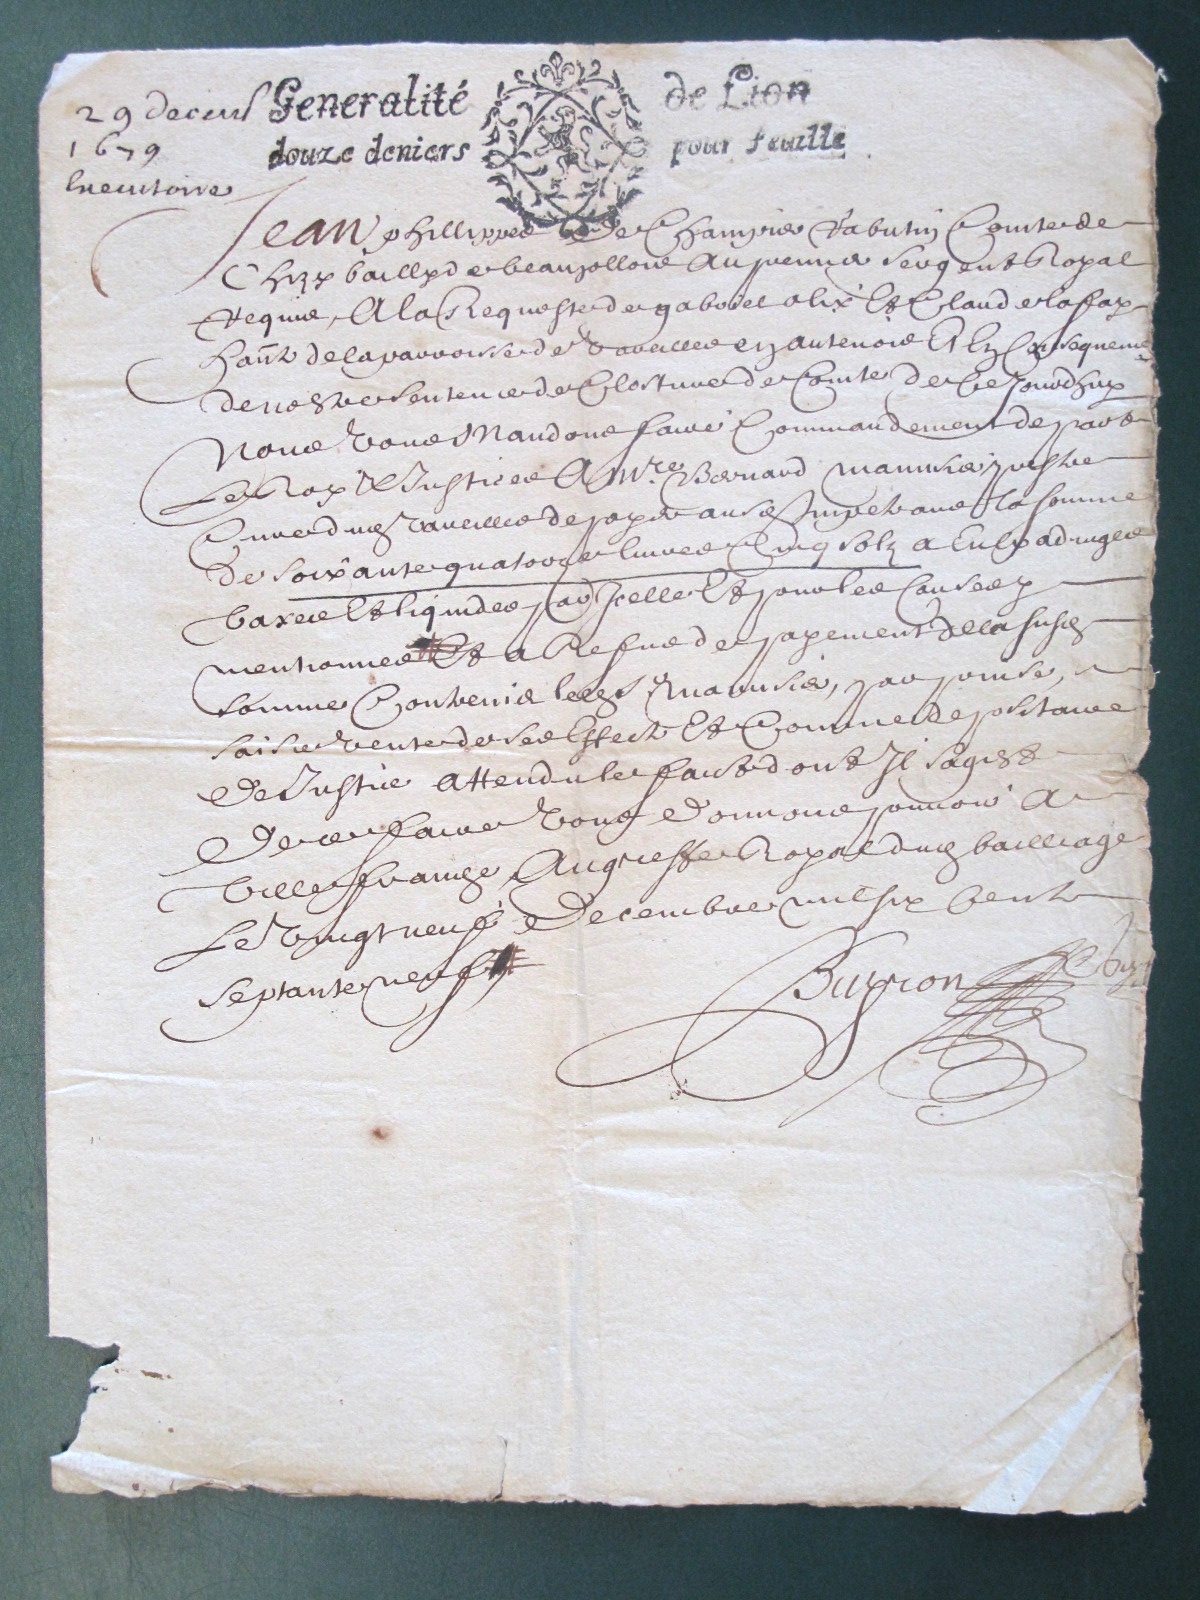 29 decemb Generalité de Lion
1679 douze deniers pour feuille
Executoire
Jean philippes de Champier Comte de
Chigy bailly de beaujollois Au premier sergent Royal
requis, A la Requeste de gabriel alix Et Claude
de la parroisse de Vauxelles Et En Consequence
de nostre sentence de Closture de Compte de Ce Jourdhuy
Nous Vous Mandons faire Commandement de part
Le Roy & Justice A Mre Bernard prestre
Curé dud de payer ausd Impetrans la somme
De soixante quatorze livres Cinq solz a Eulx adjugée
taxée Et liquidée par Icelle Et pour les Causes y
mentionnees Et a Refus de payement de la susd
somme Contraindre led par prinse,
saisie vente de ses Effectz Et Comme depositaire
De Justice attendu le faict dont Il sagist
De ce faire Vous Donnons pouvoir A
Villefranche Au greffe Royal dud bailliage
Le Vingt neuf Decembre mil six Cent
septante neuf
Buyron